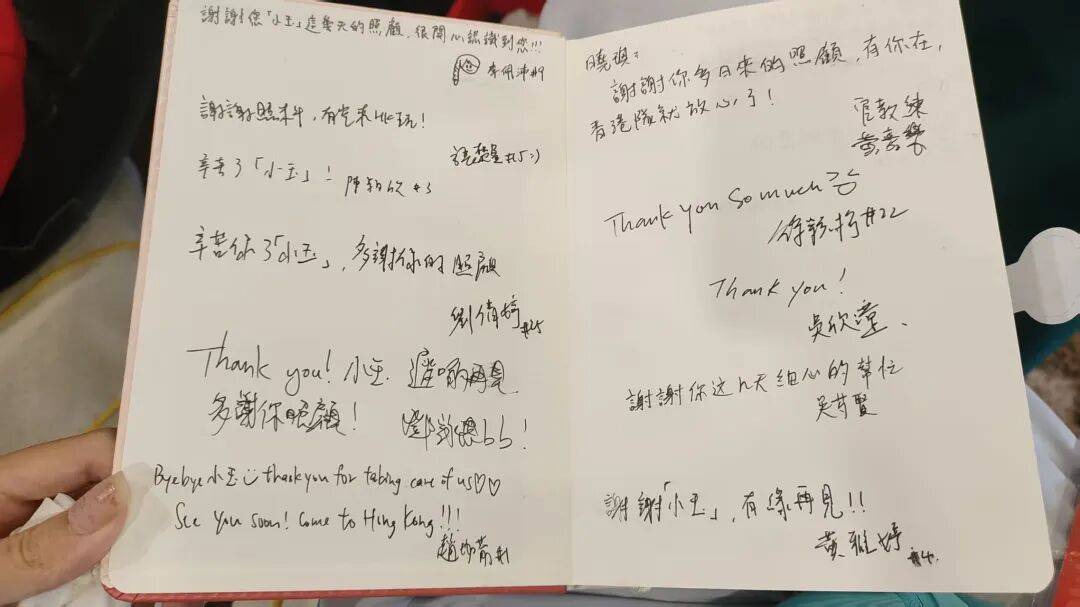 謝謝您「小玉」這幾天的照顧，很開心認識到您!!!
李佩沛#9
謝謝照未牛，有空來HK玩！
#15:)
辛苦了「小玉」！
陳 #3
辛苦你了「小玉」，多謝你的照顧
劉倩婷
#25
Thank you! 小玉 遲啲再見
多謝你照顧！
鄧 bb！
Byebye小玉 thankyou for taking care of us♡♡
See you soon! Come to Hong Kong!!!
趙 #1
曉琪：
謝謝你多日來的照顧，有你在，
香港隊就放心了！
官教練
黃
Thank you so much
#22
Thank you!
吳欣潼
謝謝你这几天细心的幫忙
吳芍賢
謝謝「小玉」，有緣再見!!
黃雅婷
#4